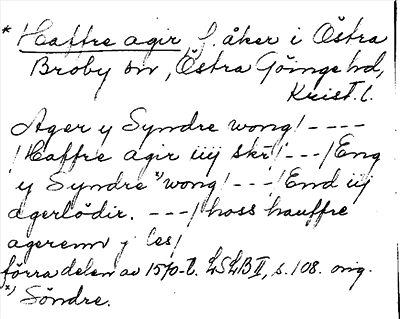 * Haffre agir f. åker i Östra
Broby sn, Östra Göinge hd,
Krist. l.
Ager y Syndre wong! ----
! Haffre agir iiij skr! ---! Eng
y Syndre *) wong! ---! End iij
agerlödir. ---! hoss hauffre
agerenn j les!
förra delen av 1570-t. LSLB II, s. 108. orig.
*) Söndre.